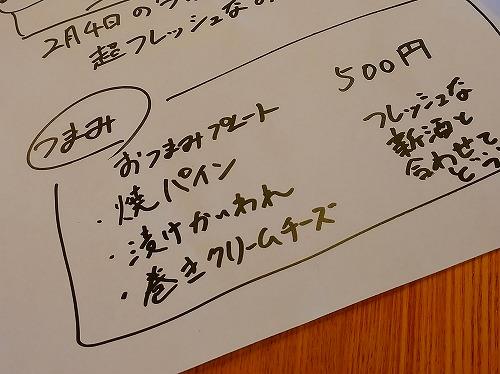 2月4日の
超フレッシュなお
つまみ
おつまみプレート 500円
・焼パイン
・漬けかいわれ
・巻きクリームチーズ
フレッシュな
新酒と
合わせて
どう